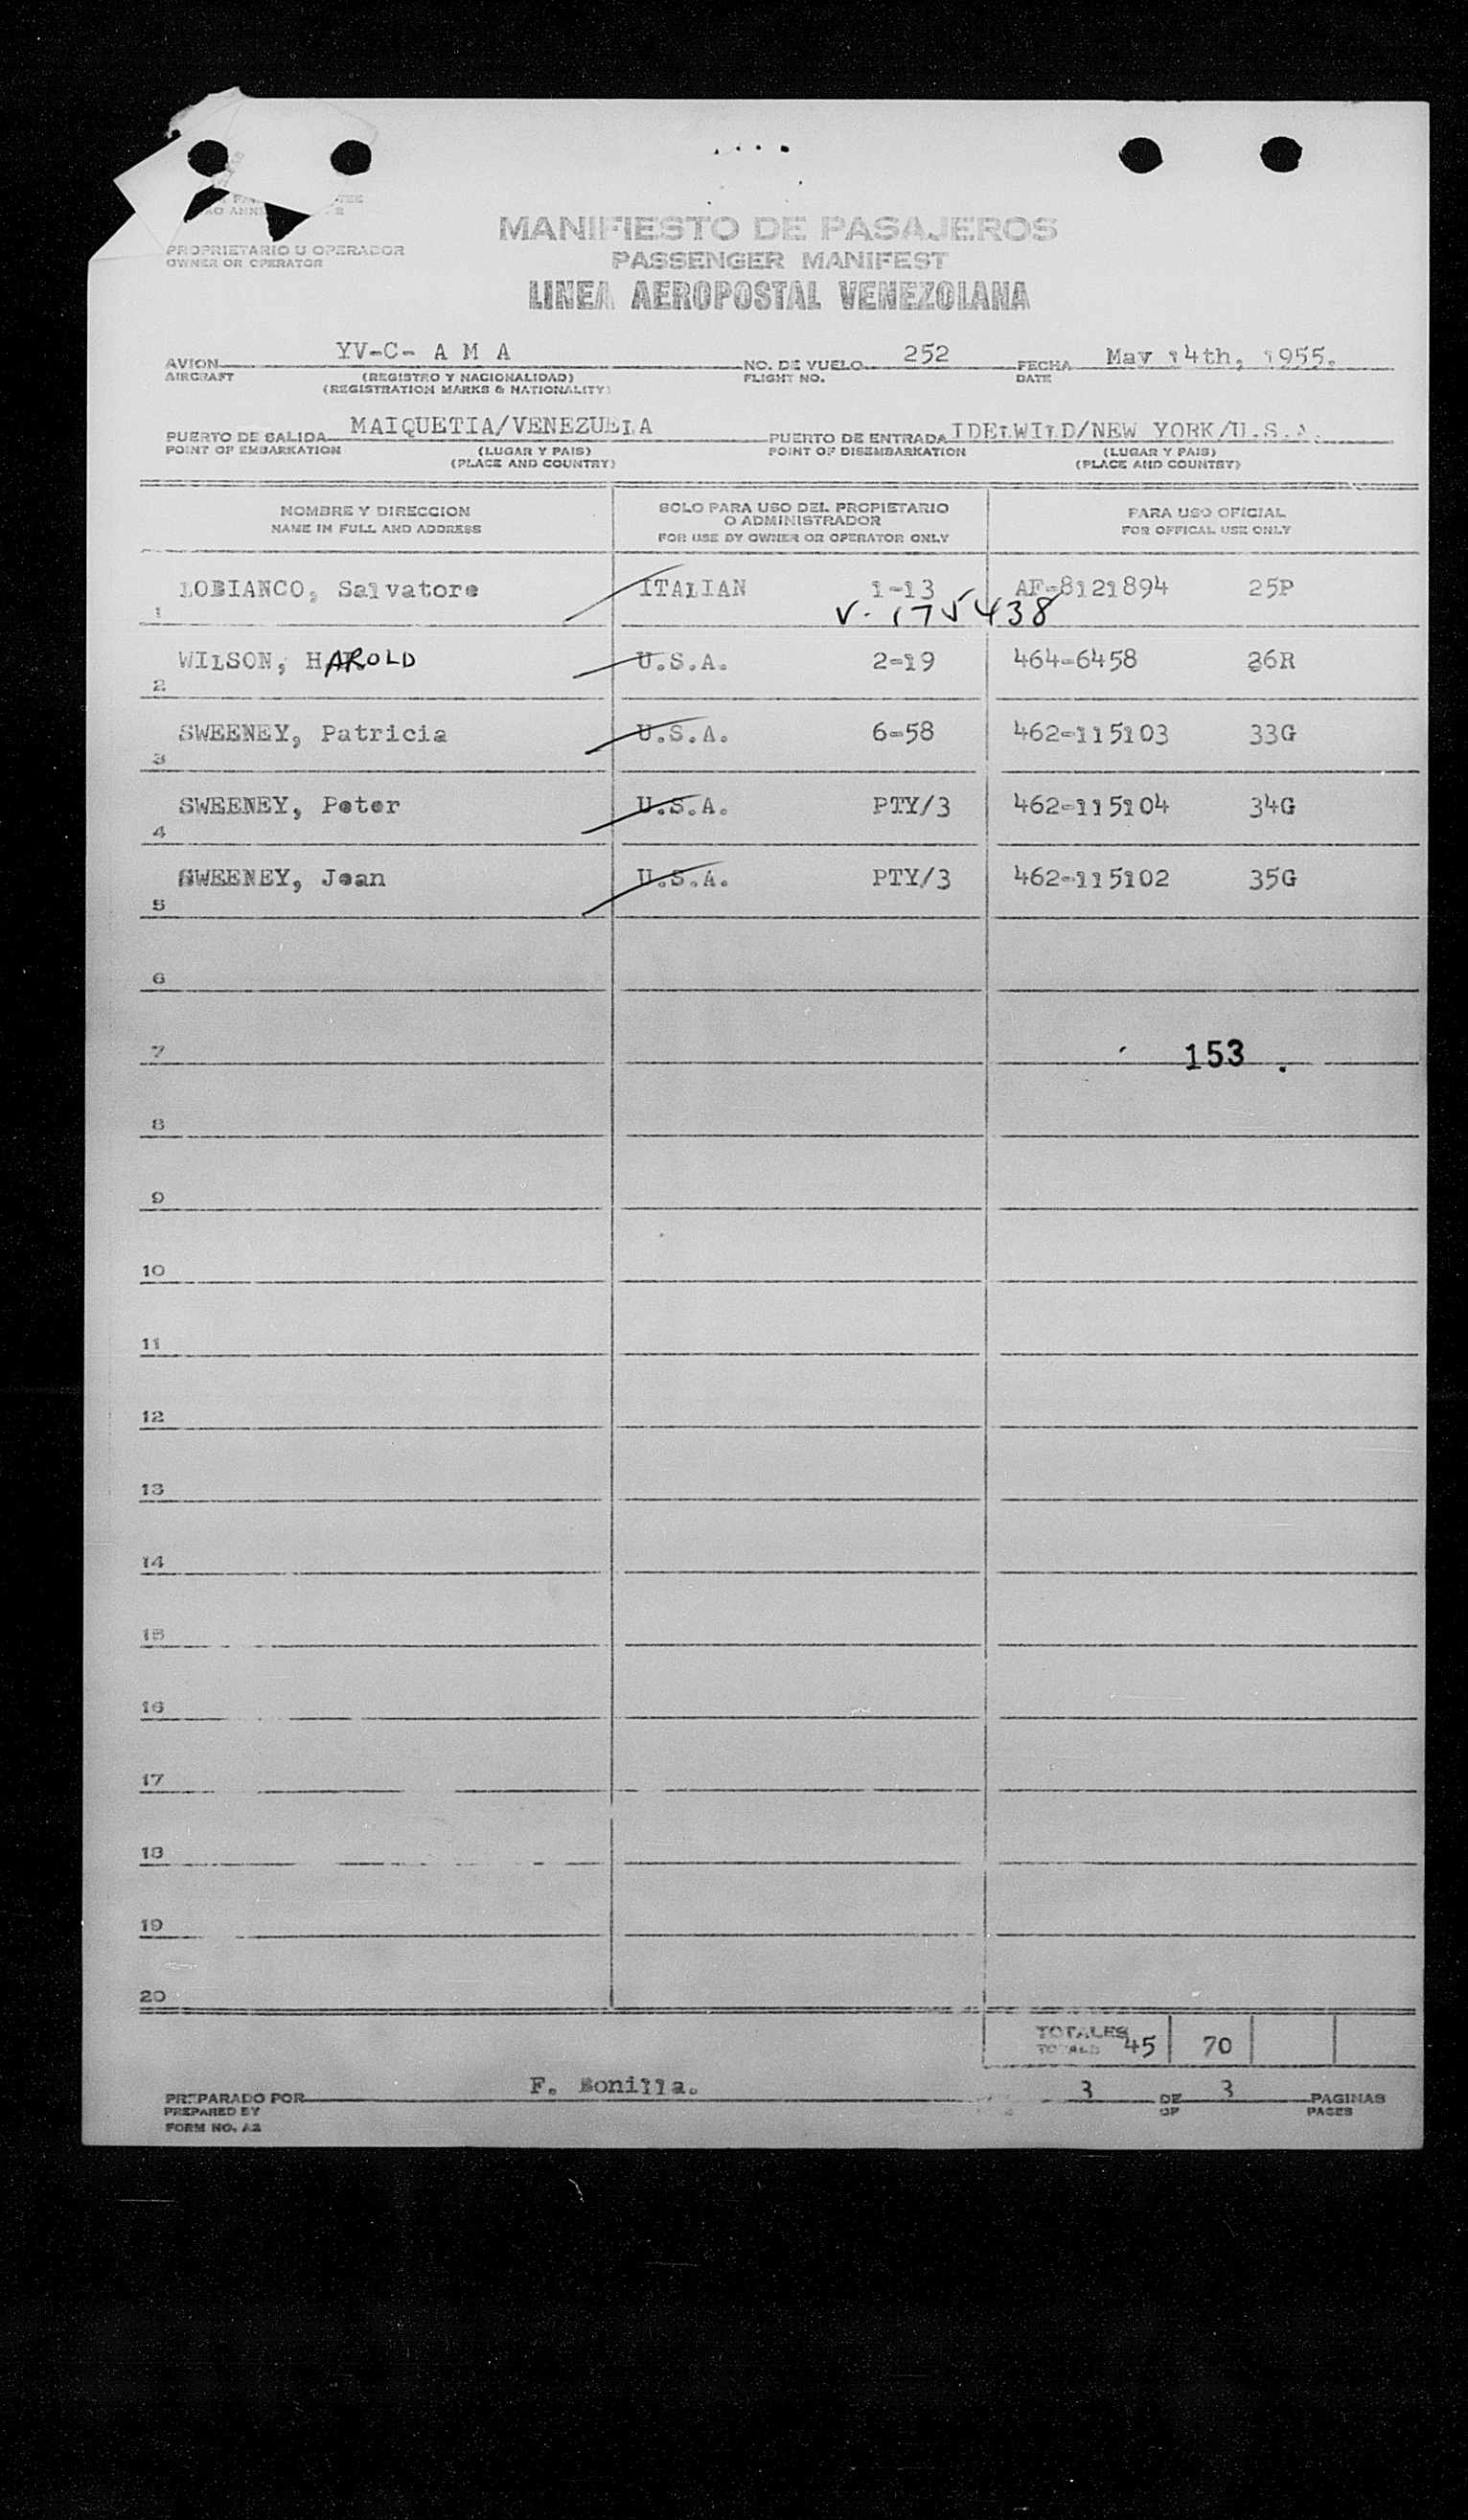 PROPRIETARIO U OPERADOR
OWNER OR OPERATOR
MANIFIESTO DE PASAJEROS
PASSENGER MANIFEST
LINEA AEROPOSTAL VENEZOLANA
AVION YV-C- A M A NO. DE VUELO 252 FECHA May 14th, 1955.
AIRCRAFT (REGISTRO Y NACIONALIDAD) FLIGHT NO. DATE
(REGISTRATION MARKS & NATIONALITY)
PUERTO DE SALIDA MAIQUETIA/VENEZUELA PUERTO DE ENTRADA IDELWILD/NEW YORK/U.S.A.
POINT OF EMBARKATION (LUGAR Y PAIS) POINT OF DISEMBARKATION (LUGAR Y PAIS)
(PLACE AND COUNTRY) (PLACE AND COUNTRY)
NOMBRE Y DIRECCION SOLO PARA USO DEL PROPIETARIO PARA USO OFICIAL
O ADMINISTRADOR
NAME IN FULL AND ADDRESS FOR USE BY OWNER OR OPERATOR ONLY FOR OFFICAL USE ONLY
LOBIANCO, Salvatore ITALIAN 1-13 AF-8121894 25P
1 V-175438
WILSON, HAROLD U.S.A. 2-19 464-6458 26R
2
SWEENEY, Patricia U.S.A. 6-58 462-115103 33G
3
SWEENEY, Peter U.S.A. PTY/3 462-115104 34G
4
SWEENEY, Jean U.S.A. PTY/3 462-115102 35G
5
6
7 153
8
9
10
11
12
13
14
15
16
17
18
19
20
TOTALES 45 70
TOTALS
PREPARADO POR F. Bonilla. 3 DE 3 PAGINAS
PREPARED BY OF PAGES
FORM NO. A2